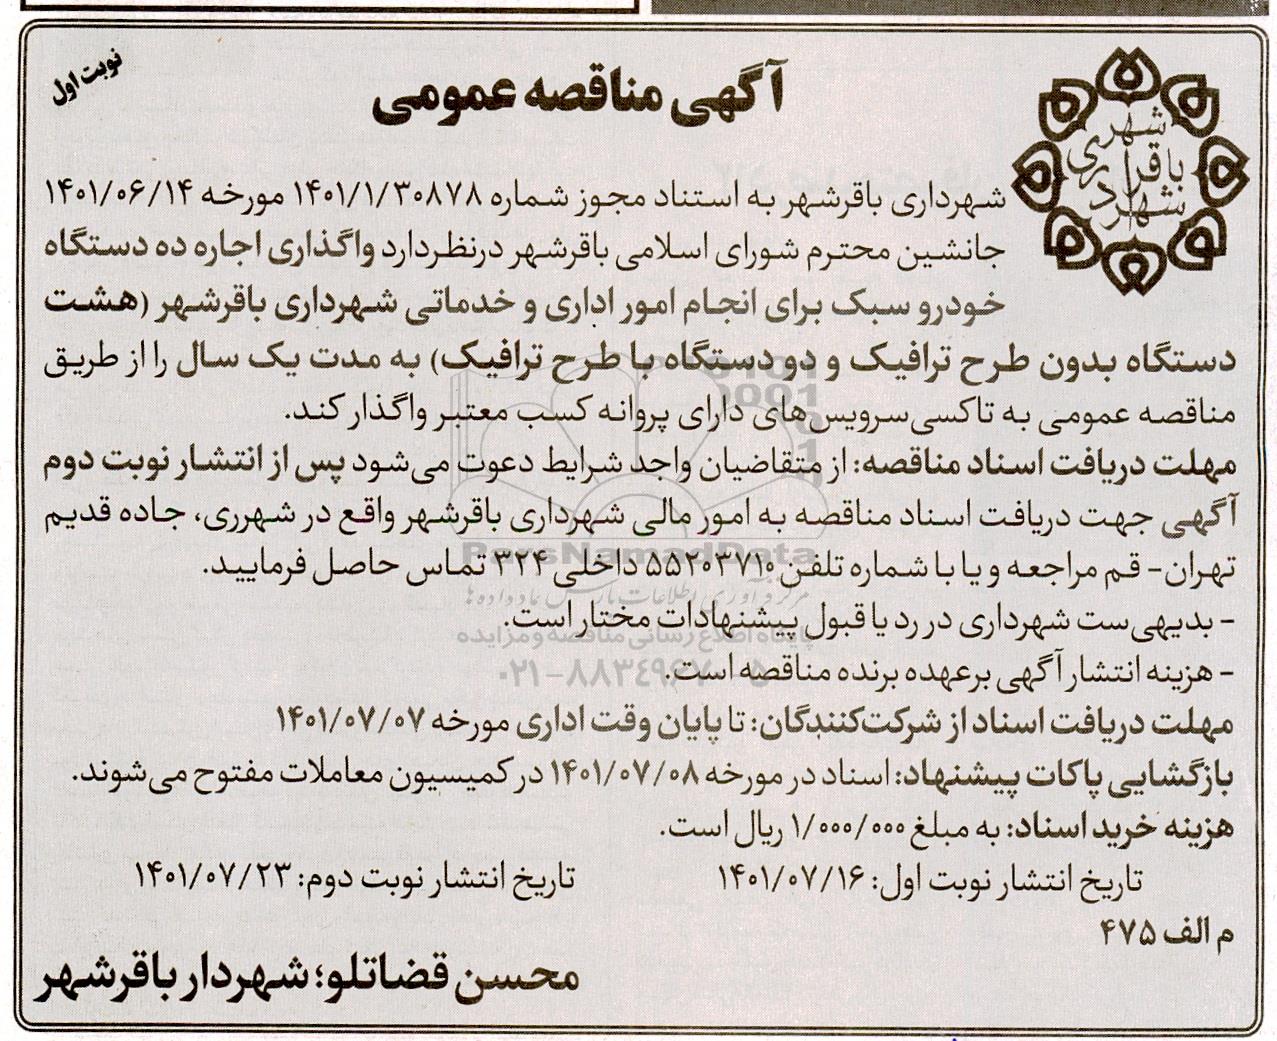 نوبت اول
آگهی مناقصه عمومی
شهرداری
باقرشهر
شهرداری باقرشهر به استناد مجوز شماره ۱۴۰۱/۱/۳۰۸۷۸ مورخه ۱۴۰۱/۰۶/۱۴
جانشین محترم شورای اسلامی باقرشهر درنظردارد واگذاری اجاره ده دستگاه
خودرو سبک برای انجام امور اداری و خدماتی شهرداری باقرشهر (هشت
دستگاه بدون طرح ترافیک و دو دستگاه با طرح ترافیک) به مدت یک سال را از طریق
مناقصه عمومی به تاکسی‌سرویس‌های دارای پروانه کسب معتبر واگذار کند.
مهلت دریافت اسناد مناقصه: از متقاضیان واجد شرایط دعوت می‌شود پس از انتشار نوبت دوم
آگهی جهت دریافت اسناد مناقصه به امور مالی شهرداری باقرشهر واقع در شهرری، جاده قدیم
تهران- قم مراجعه و یا با شماره تلفن ۵۵۲۰۳۷۱۰ داخلی ۳۲۴ تماس حاصل فرمایید.
- بدیهی‌ست شهرداری در رد یا قبول پیشنهادات مختار است.
- هزینه انتشار آگهی برعهده برنده مناقصه است.
مهلت دریافت اسناد از شرکت‌کنندگان: تا پایان وقت اداری مورخه ۱۴۰۱/۰۷/۰۷
بازگشایی پاکات پیشنهاد: اسناد در مورخه ۱۴۰۱/۰۷/۰۸ در کمیسیون معاملات مفتوح می‌شوند.
هزینه خرید اسناد: به مبلغ ۱/۰۰۰/۰۰۰ ریال است.
تاریخ انتشار نوبت اول: ۱۴۰۱/۰۷/۱۶ تاریخ انتشار نوبت دوم: ۱۴۰۱/۰۷/۲۳
م الف ۴۷۵
محسن قضاتلو؛ شهردار باقرشهر
ParsNamadData
مرکز فرآوری اطلاعات پارس نماد داده‌ها
پایگاه اطلاع رسانی مناقصه و مزایده
۰۲۱-۸۸۳۴۹۶۷۰-۵